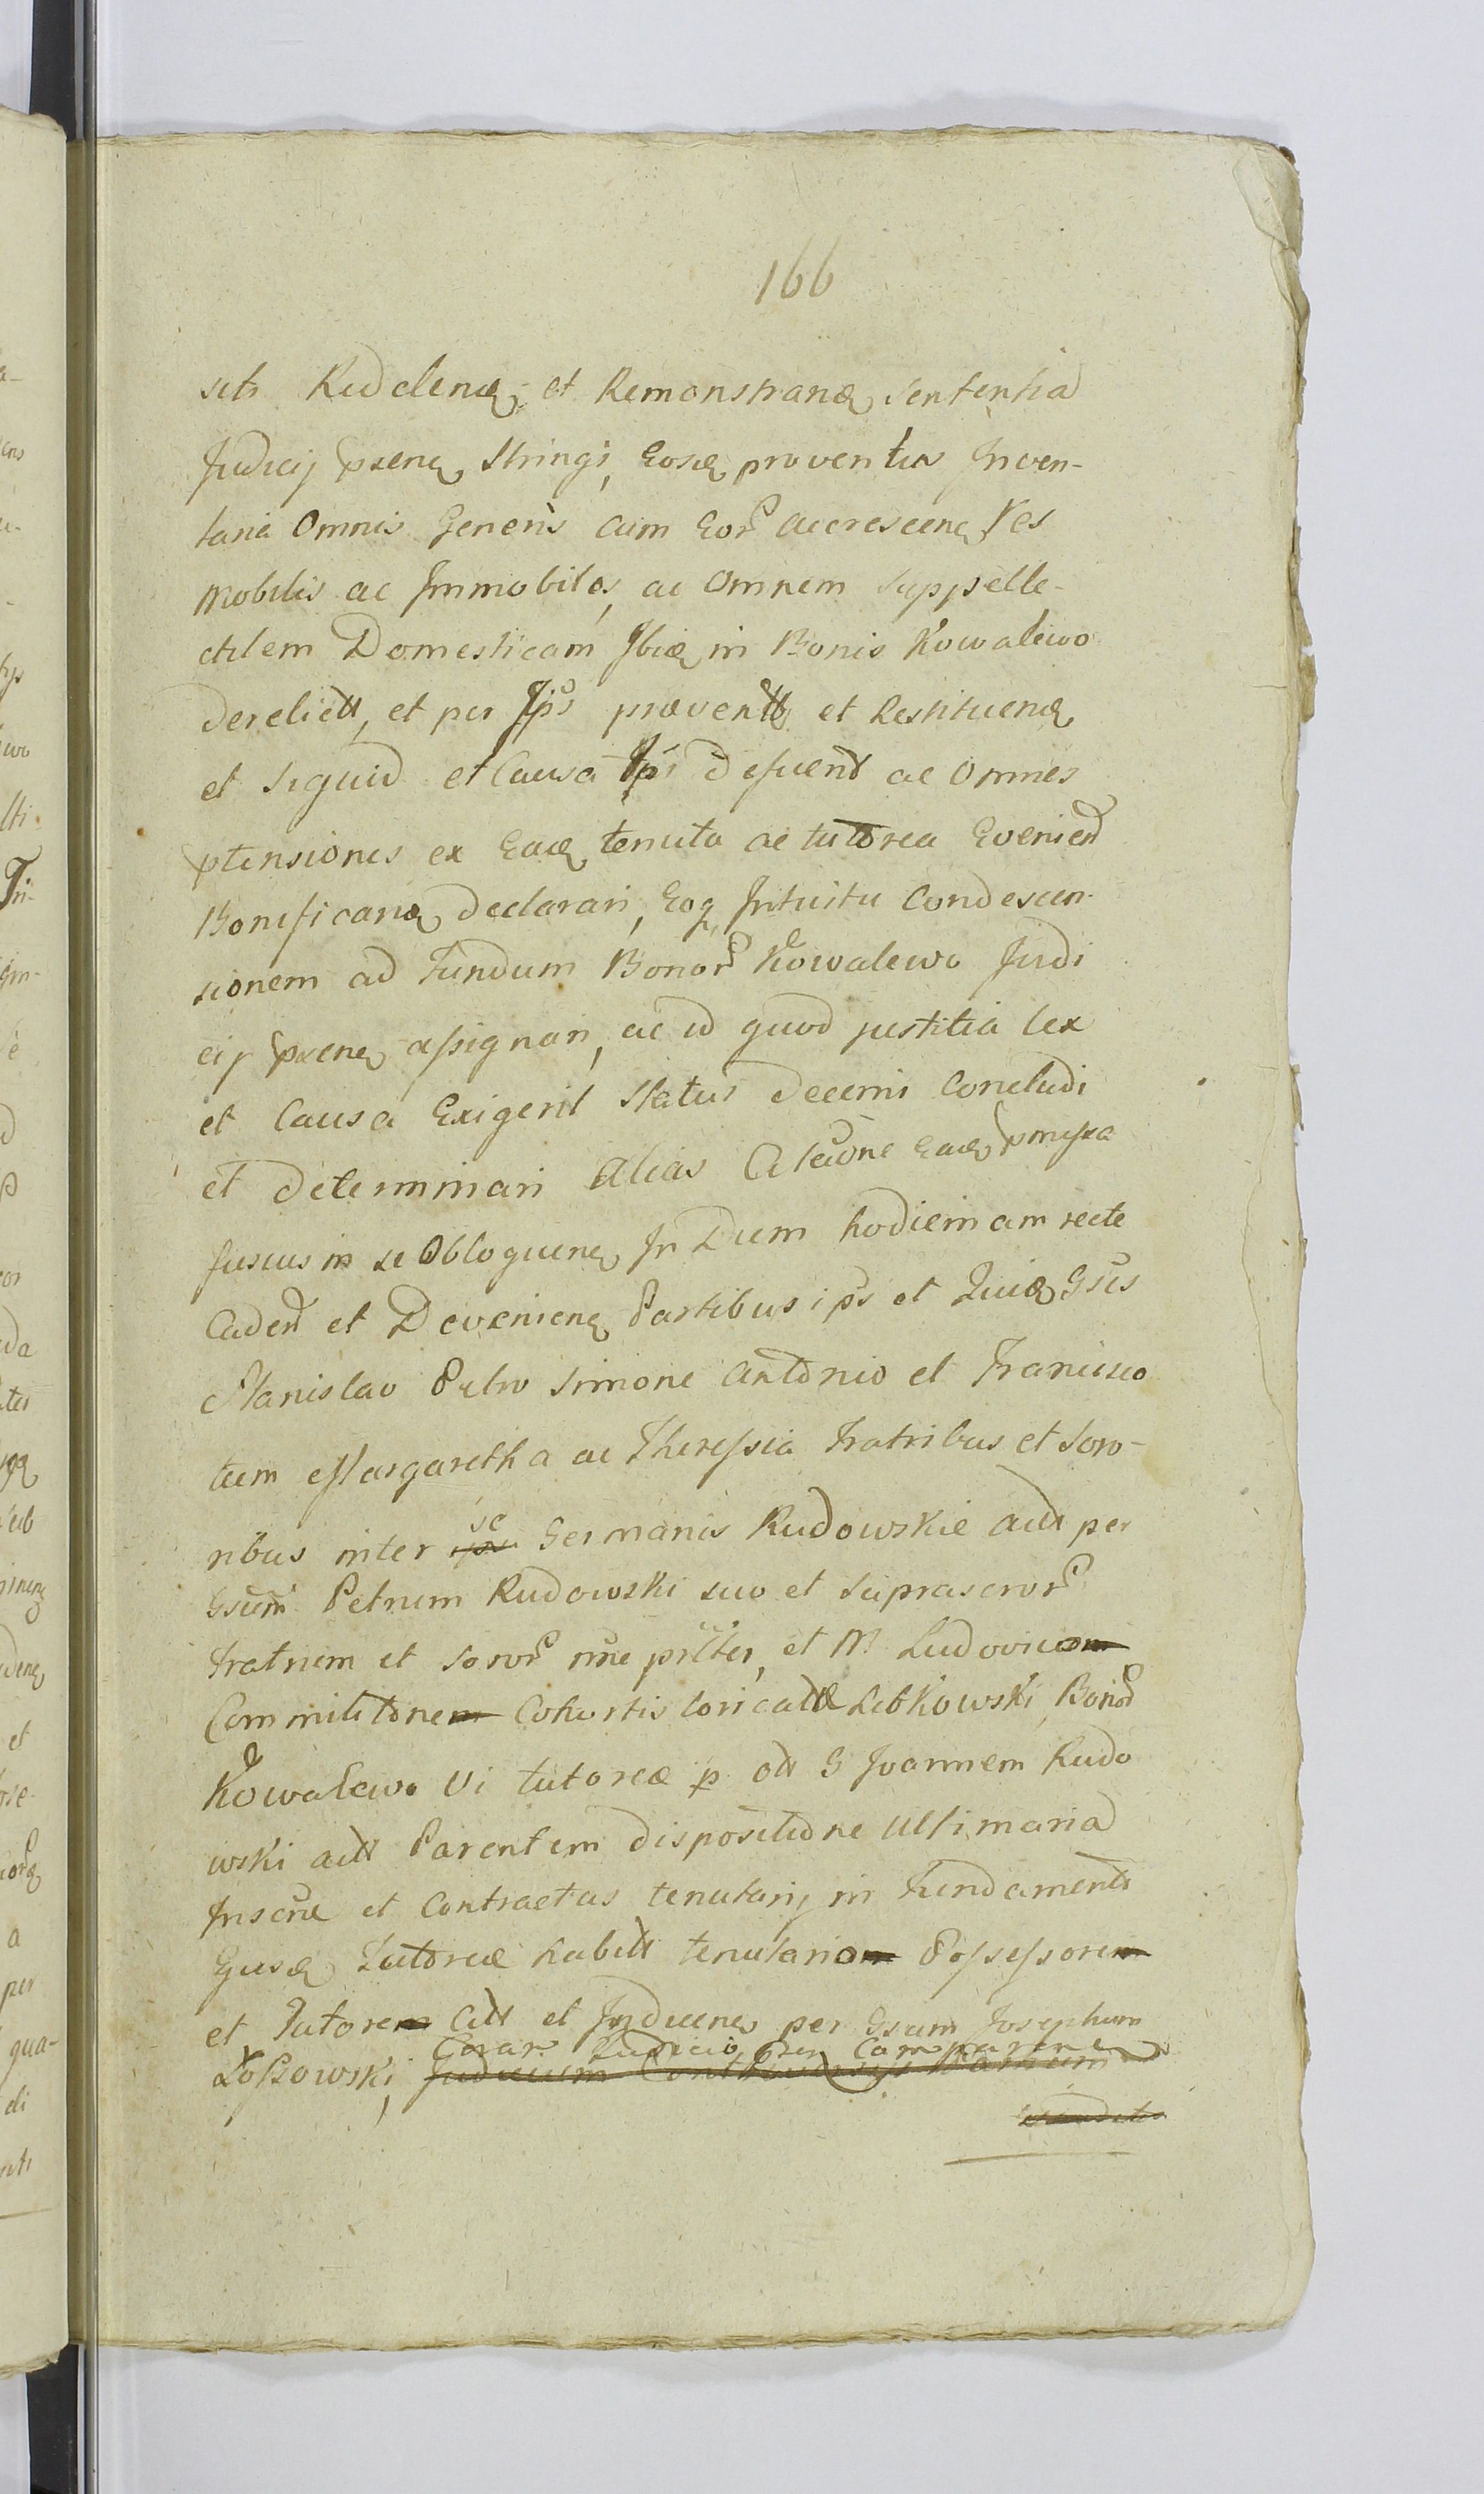 166
sitr Reddenq et Remonstranq Sententia
Judicij pxenq Stringi, Eosq proventus Inven-
taria Omnis Generis cum Eor accrescenq Res
Mobiles ac Immobiles, ac Omnem Suppelle-
ctilem Domesticam Ibiq in Bonis Kowalewo
derelictt, et per Ips et Restituenq
et Siquid et Causa Ipsi ac Omnes
ptensiones ex Eaq tenuta ac tutorea Eveniend
Bonificanq declarari, Eoq Intuitu Condescen-
sionem ad Fundum Bonor Kowalewo Judi
cij pxenq assignari, ac id quod justitia lex
et Causa Exigerit Status decerni Concludi
et determinari alias Citaone Eaq pmissa
fusius in se Obloquenq In Diem hodiernam recte
Caden et Devenienq Partibus ips et Quiq Gsis
Stanislao Petro Simone Antonio et Francisco
tum Margaretha ac Theressia Fratribus et Soro-
ribus inter se Germanis Rudowskie actt per
Gsum Petrum Rudowski suo et suprascror
Fratrum et Soror nne prltr, et M. Ludovico
Commilitone Cohortis loricattae Lebkowski, Bonor
Kowalewo Vi tutoreae p ott G Joannem Rudo
wski actt Parentem dispositione Ultimaria
Inscrne et Contractus tenutarij in Fundamentt
Ejusq Tutoreae habitt tenutario Possessore
et Tutore Citt et Inducenq per Gsum Josephum
Coram Judicio pxen Comparen
Łossowski, Judicium